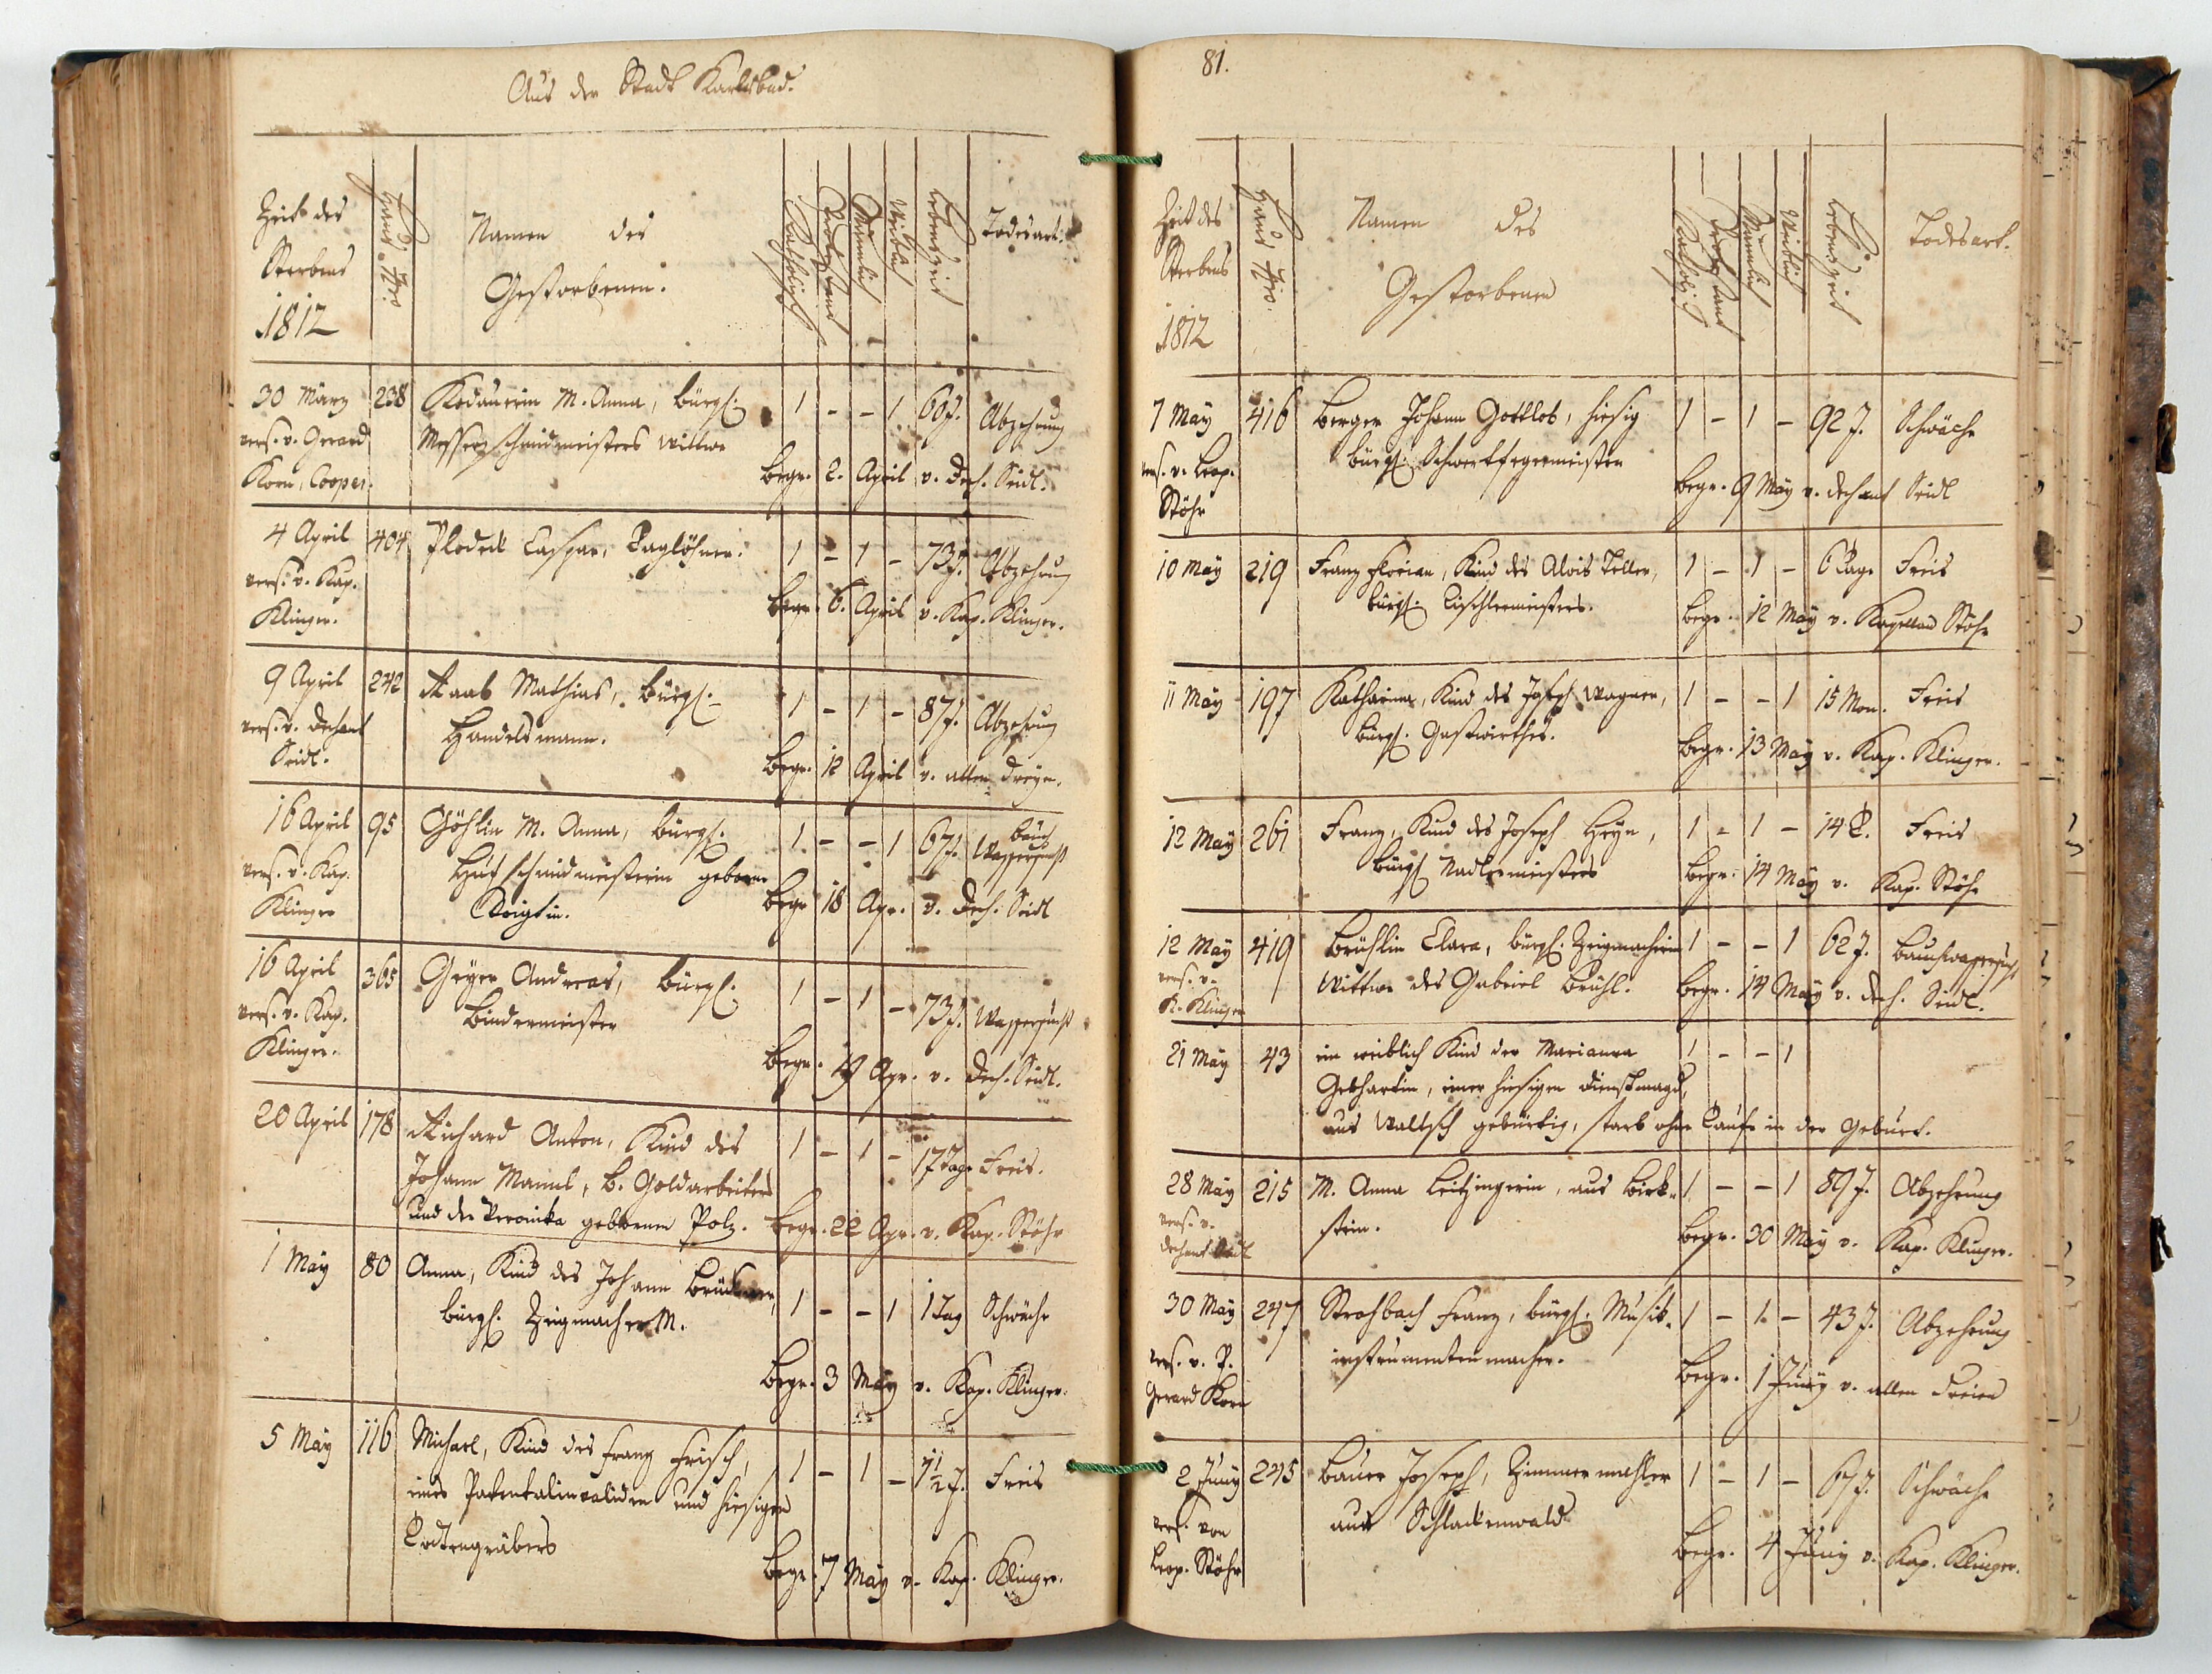 Aus der Stadt Karlsbad.
Zeit des
Sterbens
1812
Haus Nro.
Namen der
Gestorbenen.
Katholisch
Protestant
Männlich
Weiblich
Lebenszeit
Todesart.
30 März 238 M. Anna, bürgl. 1 - - 1 60 J. Abzehrung
vers. v. Gerard Messerschmidmeisters Wittwe
Korn, Cooper. Begr. 2. April v. Dech. Seidl.
4 April 404 Plodeck Caspar, Taglöhner. 1 - 1 - 73 J. Abzehrung
vers. v. Kap. Begr. 6. April v. Kap. Klinger.
Klinger.
9 April 242 Raab Mathias, bürgl. 1 - 1 - 87 J. Abzehrung
vers. v. Dechant Handelsmann.
Seidl. Begr. 12 April v. allen Dreyn.
16 April 95 M. Anna, bürgl. 1 - - 1 67 J. Bauch
Wassersucht
vers. v. Kap. Hutschmidmeisterin geborne
Klinger Voigtin. Begr 18 Apr. v. Dech. Seidl
16 April 365 Geyer Andreas, bürgl. 1 - 1 - 73 J. Wassersucht
vers. v. Kap. Bindermeister
Klinger. Begr. 19 Apr. v. Dech. Seidl.
20 April 178 Richard Anton, Kind des 1 - 1 - 17 Tage Freis.
Johann Mannl, b. Goldarbeiters
und der Veronika gebornen Polz. Begr. 22 Apr. v. Kap. Stöhr
1 May 80 Anna, Kind des Johann Brückner, 1 - - 1 1 Tag Schwäche
bürgl. Zeigmacher M.
Begr. 3 May v. Kap. Klinger.
5 May 116 Michael, Kind des Franz Frisch, 1 - 1 - 1½ J. Freis
eines Patentalinvaliden und hiesigen
Todtengräbers Begr. 7 May v. Kap. Klinger.
81.
Zeit des
Sterbens
1812
Haus Nro.
Namen des
Gestorbenen
Katholisch
Protestant
Männlich
Weiblich
Lebenszeit
Todesart.
7 May 416 Berger Johann Gottlob, hiesig 1 - 1 - 92 J. Schwäche
vers. v. Leop. bürgl. Schwertfegermeister
Stöhr Begr. 9 May v. Dechant Seidl
10 May 219 Franz Florian, Kind des Alois Teller, 1 - 1 - 6 Tage Freis
bürgl. Tischlermeisters. Begr. 12 May v. Kapellan Stöhr
11 May 197 Katharina, Kind des Joseph Wagner, 1 - - 1 15 Mon. Freis
bürgl. Gastwirthes. Begr. 13 May v. Kap. Klinger.
12 May 261 Franz, Kind des Joseph Heyn, 1 - 1 - 14 T. Freis
bürgl Nadlermeisters Begr. 14 May v. Kap. Stöhr
12 May 419 Brühlin Clara, bürgl. Zeigmacherin 1 - - 1 62 J. Bauchwassersucht
vers. v. Wittwe des Gabriel Brühl. Begr. 14 May v. Dech. Seidl.
K. Klinger
21 May 43 ein weiblich Kind der Marianna 1 - - 1
Gebhartin, einer hiesigen Dienstmagd,
aus Waltsch gebürtig, starb ohne Taufe in der Geburt.
28 May 215 M. Anna Leitzingerin, aus Birk- 1 - - 1 89 J. Abzehrung
vers. v. stein. Begr. 30 May v. Kap. Klinger.
Dechant Seidl
30 May 247 Strohbach Franz, bürgl. Musik- 1 - 1 - 43 J. Abzehrung
vers. v. P. instrumentenmacher.
Gerard Korn Begr. 1 Juny v. allen Dreien
2 Juny 245 Bauer Joseph, Zimmermahler 1 - 1 - 67 J. Schwäche
vers. von aus Schlackenwald
Leop. Stöhr Begr. 4 Juny v. Kap. Klinger.